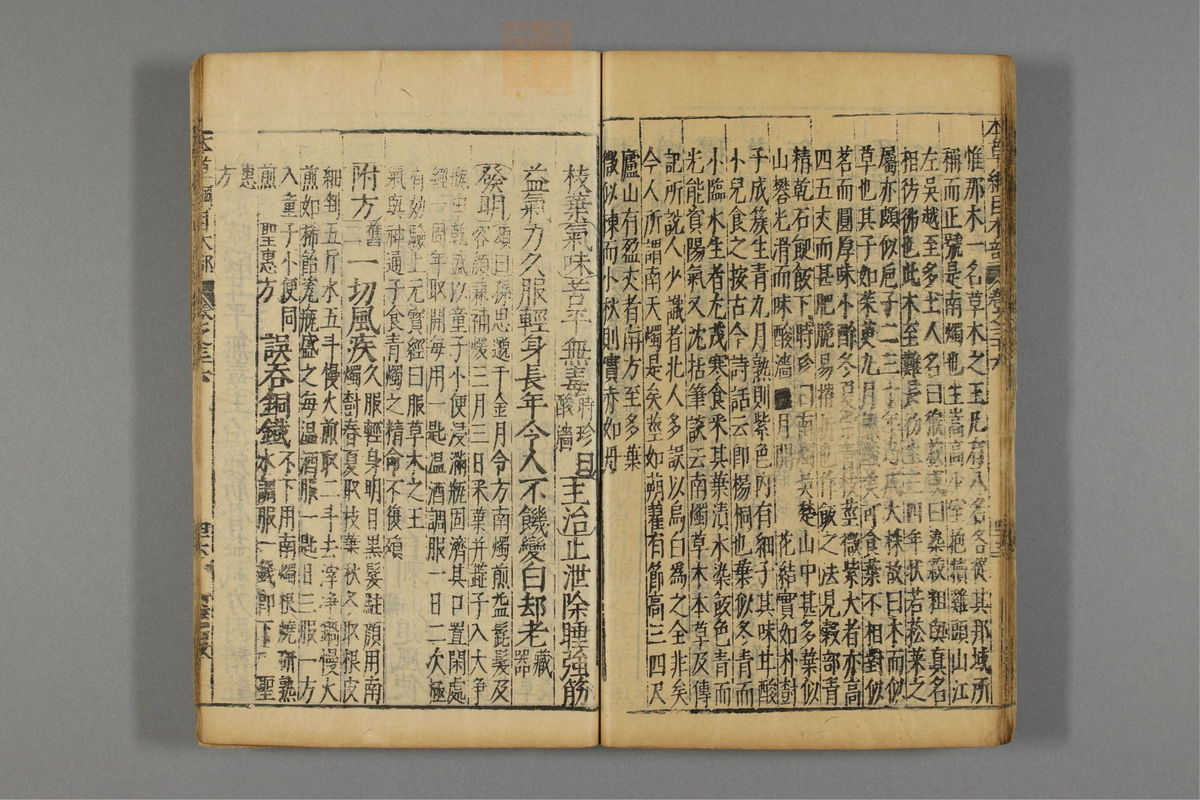 惟那木一名草木之王凡有八名各從其邦域所
稱而正號是南燭也生嵩高少室抱犢雞頭山江
左吳越至多土人名曰猴菽或曰染菽粗與真名
相彷彿也此木至難長初生三四年狀若菘菜之
屬亦頗似巵子二三十年成大株故曰木而似
草也其子如茱萸九月熟酸美可食葉不相對似
茗而圓厚味小酢冬夏常青枝莖微紫大者亦高
四五丈而甚肥脆易摧折也作飯之法見穀部青
精乾石䭀飯下時珍曰南燭吳楚山中甚多葉似
山礬光滑而味酸濇七月開小白花結實如朴樹
子成簇生青九月熟則紫色內有細子其味甘酸
小兒食之按古今詩話云即楊桐也葉似冬青而
小臨水生者尤茂寒食采其葉漬水染飯色青而
光能資陽氣又沈括筆談云南燭草木本草及傳
記所說人少識者北人多誤以烏臼為之全非矣
今人所謂南天燭是矣莖如蒴藋有節高三四尺
廬山有盈丈者南方至多葉
微似楝而小秋則實赤如丹
枝葉氣味苦平無毒時珍曰酸濇主治止泄除睡強筋
益氣力久服輕身長年令人不饑變白却老藏器
發明頌曰孫思邈千金月令方南燭煎益髭髮及
容顏兼補煖三月三日采葉并蕋子入大淨
瓶中乾盛以童子小便浸滿瓶固濟其口置閑處
經一周年取開每用一匙溫酒調服一日二次極
有効驗上元寶經曰服草木之王
氣與神通子食青燭之精命不復殞
附方舊二一切風疾久服輕身明目黑髮駐顏用南
燭樹春夏取枝葉秋冬取根皮
細剉五斤水五斗慢火煎取二斗去滓淨鍋慢火
煎如稀飴瓷瓶盛之每溫酒服一匙日三服一方
入童子小便同
煎聖惠方誤吞銅鐵不下用南燭根燒研熟
水調服一錢即下聖
惠
方
本草綱目木部 卷之三十六
本草綱目木部 卷之三十六